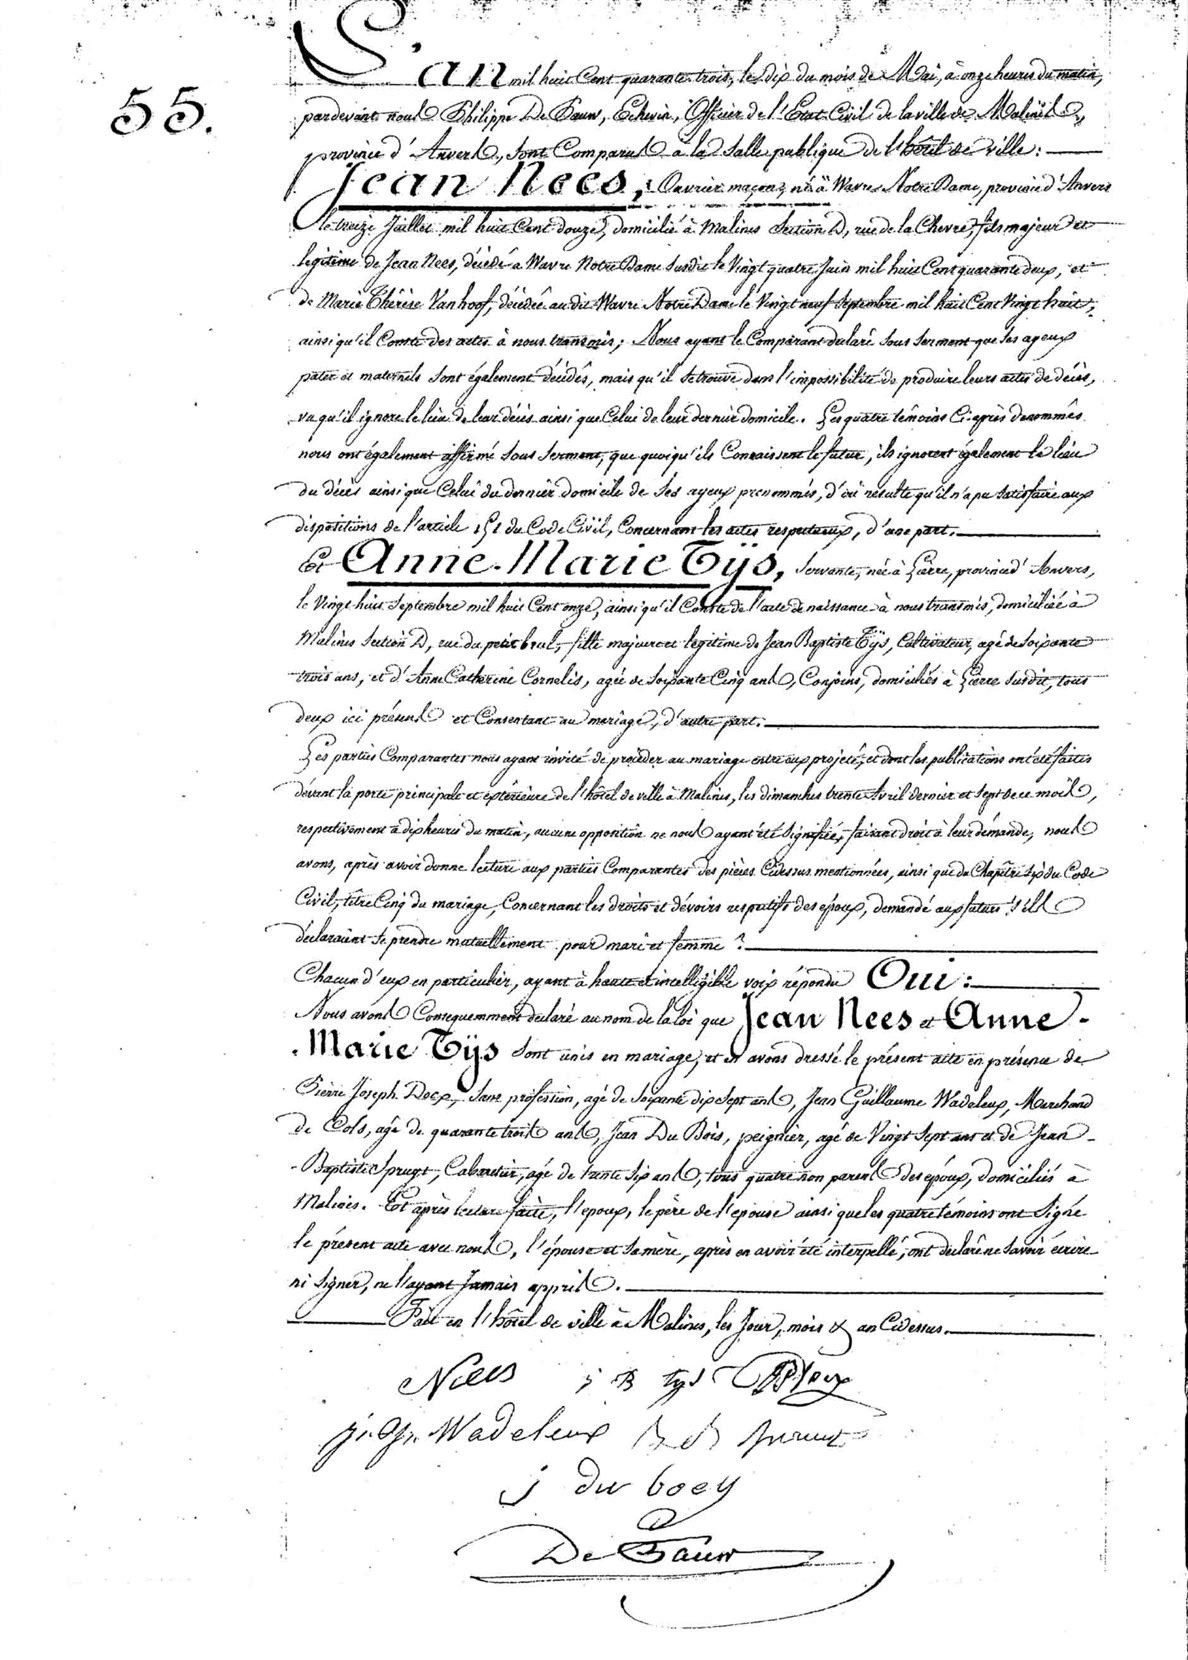 55.
L'an mil huit Cent quarante trois, le dix du mois de Mai, à onze heures du matin,
pardevant nous Philippe De Bauw, Echevin, Officier de l'Etat Civil de la ville de Malines,
province d'Anvers, sont Comparus à la Salle publique de l'hôtel de ville:
Jean Nees, Ouvrier maçon, né à Wavre Notre Dame, province d'Anvers
le treize Juillet mil huit Cent douze, domicilié à Malines Section D, rue de la Chevre, fils majeur et
légitime de Jean Nees, décédé à Wavre Notre Dame susdit le Vingt quatre Juin mil huit Cent quarante deux, et
de Marie Thérèse Vanhoof, décédée au dit Wavre Notre Dame le Vingt neuf Septembre mil huit Cent Vingt huit,
ainsi qu'il Conste des actes à nous transmis; Nous ayant le Comparant declaré sous serment que ses ayeux
pater et maternels sont également décédés, mais qu'il se trouve dans l'impossibilité de produire leurs actes de décès,
vu qu'il ignore le lieu de leur décès ainsi que Celui de leur dernier domicile. Les quatre témoins Ci-après denommés
nous ont également affirmé sous serment, que quoiqu'ils Connaissent le futur, ils ignorent également le lieu
du décès ainsi que Celui du dernier domicile de ses ayeux prenommés, d'où résulte qu'il n'a pu satisfaire aux
dispositions de l'article 151 du Code Civil, Concernant les actes respectueux, d'une part.
Et Anne-Marie Tÿs, Servante, née à Lierre, province d'Anvers,
le Vingt-huit Septembre mil huit Cent onze, ainsi qu'il Conste de l'acte de naissance à nous transmis, domiciliée à
Malines Section D, rue du petit brul, fille majeure et legitime de Jean Baptiste Tÿs, Cultivateur, agé de soixante
trois ans, et d'Anne Catherine Cornelis, agée de soixante Cinq ans, Conjoins, domiciliés à Lierre susdit, tous
deux ici présens et Consentant au mariage, d'autre part.
Les parties Comparantes nous ayant invité de procéder au mariage entre eux projeté, et dont les publications ont été faites
devant la porte principale et extérieure de l'hôtel de ville à Malines, les dimanches trente Avril dernier et sept de ce mois,
respectivement à dix heures du matin, aucune opposition ne nous ayant été signifiée, faisant droit à leur demande, nous
avons, après avoir donné lecture aux parties Comparantes des pièces Cidessus mentionnées, ainsi que du Chapître six du Code
Civil, titre Cinq du mariage, Concernant les droits et devoirs respectifs des époux, demandé aux futurs s'ils
déclaraient se prendre mutuellement pour mari et femme?
Chacun d'eux en particulier, ayant à haute et intelligible voix répondu Oui:
Nous avons Consequemment declaré au nom de la loi que Jean Nees et Anne-
Marie Tÿs sont unis en mariage, et en avons dressé le présent acte en présence de
Pierre Joseph Docx, sans profession, agé de soixante dix sept ans, Jean Guillaume Wadeleux, Marchand
de Cols, agé de quarante trois ans, Jean Du Bois, peignier, agé de Vingt sept ans et de Jean-
Baptiste Spruyt, Cabaretier, agé de trente six ans, tous quatre non parens des époux, domiciliés à
Malines. Et après lecture faite, l'époux, le père de l'épouse ainsi que les quatre témoins ont signé
le présent acte avec nous, l'épouse et sa mère, après en avoir été interpellé, ont declaré ne savoir écrire
ni signer, ne l'ayant Jamais appris.
Fait en l'hôtel de ville à Malines, les Jour, mois & an Cidessus.
Nees j B tys
j. g. Wadeleux
j du boey
De Bauw